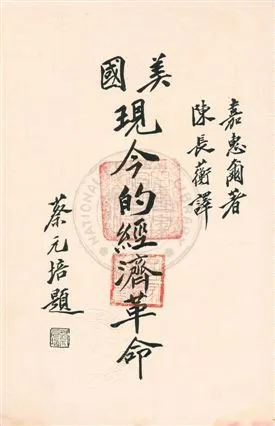 美國
現今的經濟革命
嘉惠爾著
陳長蘅譯
蔡元培題
NATIONAL